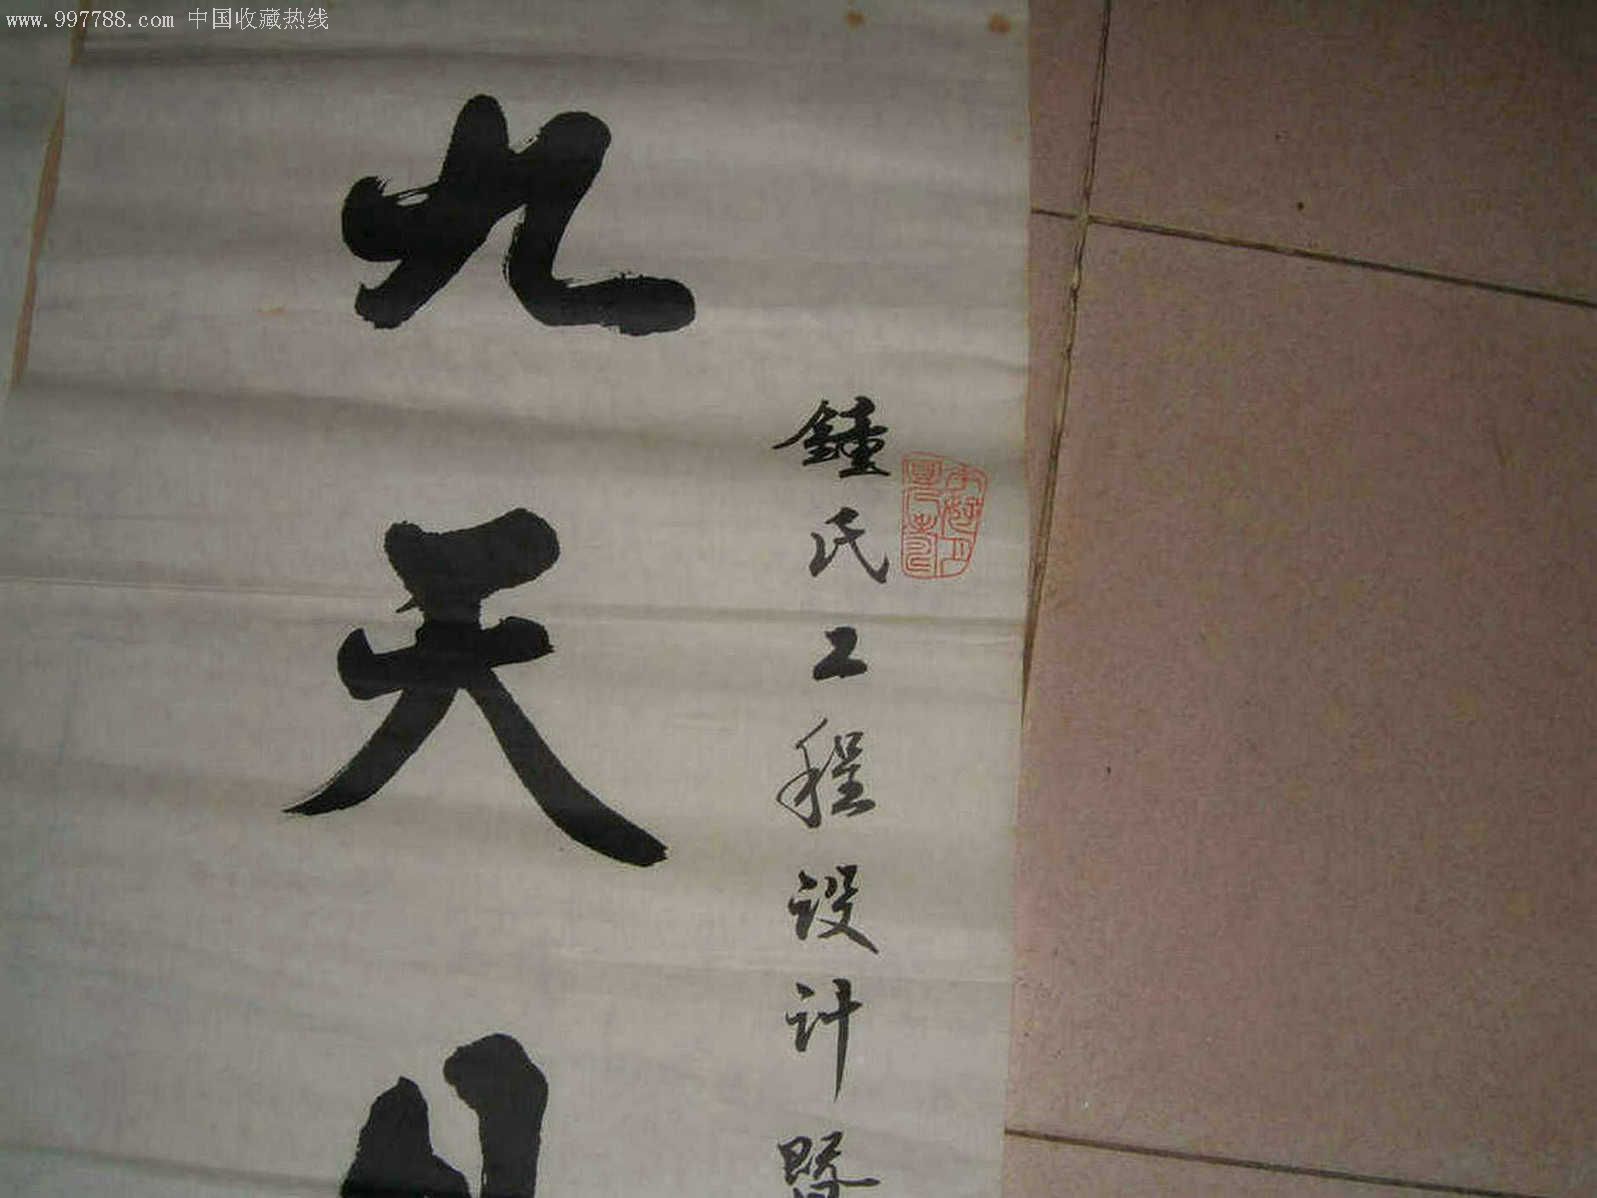 www.997788.com 中国收藏热线
鍾氏工程设计暨
九天